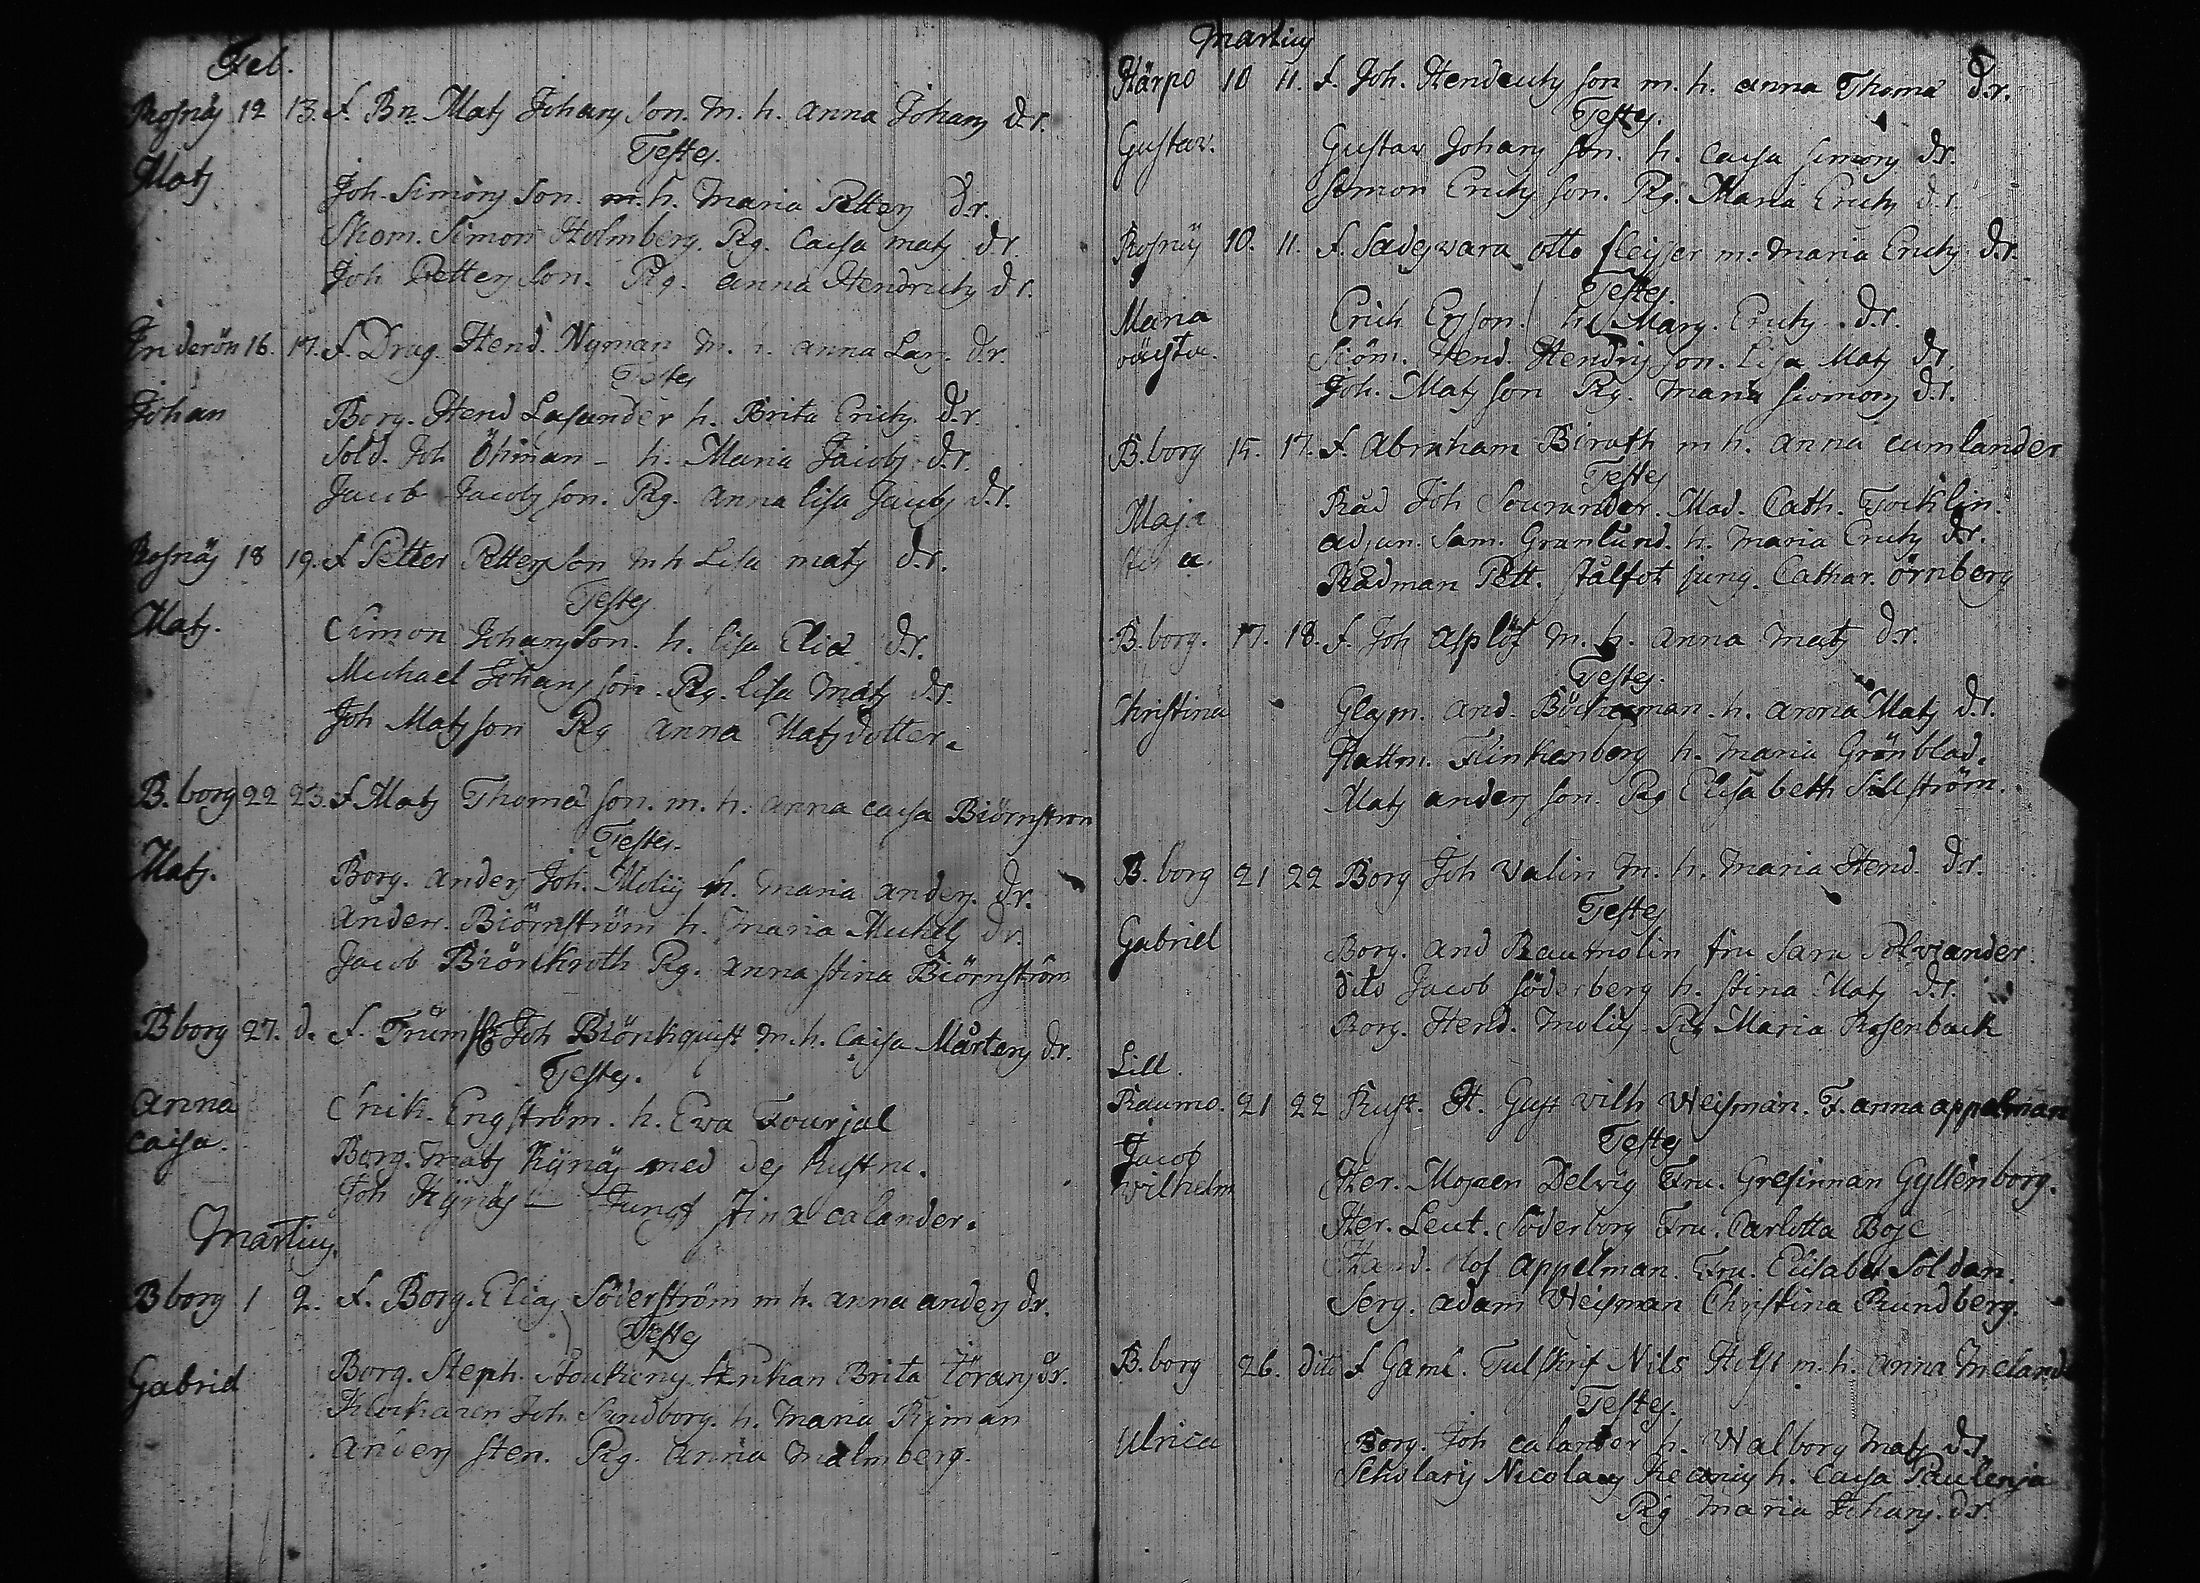 Feb.
Rosnäs 12 13. f. Bn. Mats Johans son. m. h. anna Johans d.r.
Testes.
Mats
Joh. Simons son. m. h. Maria Petters d.r.
Skom. Simon Holmberg. Pig. Caisa mats d.r.
Joh Petters son. Pig. anna Hendrichs d.r.
Inderön 16. 17. f. Drag. Hend. Nyman m. h. anna Lars. d.r.
Testes
Johan
Borg. Hend Lasander h. Brita Erichs. d.r.
Sold. Joh Öhman - h. Maria Jacobs. d.r.
Jacob Jacobs son. Pig. anna lisa Jacobs d.r.
Rosnäs 18 19. f Petter Petters son m h Lisa mats d.r.
Testes
Mats.
Simon Johans son. h. lisa Elia d.r.
Michael Johans son. Pig. lisa mats d.r.
Joh Mats son Pig anna Mats dotter.
B. borg 22 23. f Mats Thoma son. m. h. anna caisa Biörnstrom
Testes.
Mats.
Borg. anders Joh. Moliis h. maria anders. d.r.
Anders. Biörnström h. Maria Michels d.r.
Jacob Biörckroth Pig. anna stina Biörnström
B borg 27. d. f. Trumsl Joh Biörckquist m. h. Caisa Mårtens d.r.
Testes.
Anna
Caisa.
Snik. Engström. h. Eva Fourjal
Borg. mats Kynäs med des hustru.
Joh Kynäs — Jungf stina calander.
Martius.
B borg 1 2. f. Borg. Elias Söderström m h. anna anders d.r.
Testes
Gabriel
Borg. Steph. Enkan Brita Görans d.r.
Klockaren Joh Sundborg. h. maria Ryman
Anders Sten. Pig. Anna malmberg.
Martius
Härpö 10 11. f. Joh. Hendrichs son m. h. anna Thoma d.r.
Testes.
Gustav.
Gustav Johans son. h. Caisa simons d.r.
Simon Erichs son. Pig. Maria Erichs d.r.
Rosnäs 10. 11. f. Sadesvara otto sleisser m: maria Erichs d.r.
Testes.
Maria
Erich Ersson. h. Marg. Erichs. d.r.
Siöm. Hend. Hendrs son. Lisa Mats d.r.
Joh. Mats son Pig. maria simons d.r.
B. borg 15. 17. f. Abraham Biroth m h. anna cumlander
Testes
Maja
Råd Joh Sourander. Mad. Cath. Tocklin.
Adjun. Sam. Granlund. h. maria Erichs d.r.
Rådman Pett. stålfot jung. Cathar. örnberg
B. borg. 17. 18. f. Joh Asplöf m. h. anna mats d.r.
Testes.
Christina
Glasm. And. Böckerman. h. anna Mats d.r.
Hattm. Flinkenberg h. maria Grönblad.
Mats anders son. Pig Elisabeth Sillström.
B. borg 21 22 Borg Joh Valin m. h. maria Hend. d.r.
Testes
Gabriel
Borg. And Raumolin fru Sara Polviander
dito Jacob söderberg h. stina Mats d.r.
Borg. Hend. molijs Pig Maria Rosenback
Lill
Raumo. 21 22 Rust. H. Gust wilh Weisman. F. anna appelman
Testes
Jacob
wilhelm
Her. Majoren Delvig Fru. Grefinnan Gyllenborg.
Her. Leut. Söderborg Fru. Carlotta Boje
Olof Appelman. Fru. Elisabet Soldan.
Serg. Adam Weisman Christina Rundberg.
B. borg 26. dito f Gaml. Tulskrif Nils Holst m. h. anna Meland
Testes.
Ulrica
Borg. Joh calander h. Walborg mats d.r.
Scholaris Nicolaus h. Caisa Paulenja
Pig maria Johans. d.r.